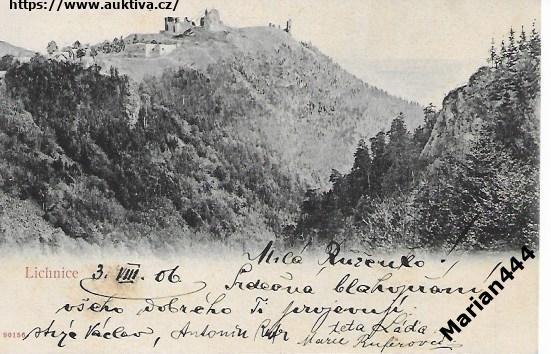 https://www.auktiva.cz/
Milá Růženko!
Lichnice 3. VIII. 06 Srdečná blahopřání
všeho dobrého Ti projevují
90156 strýc Václav, Antonín teta Láda.
Marie
Marian444